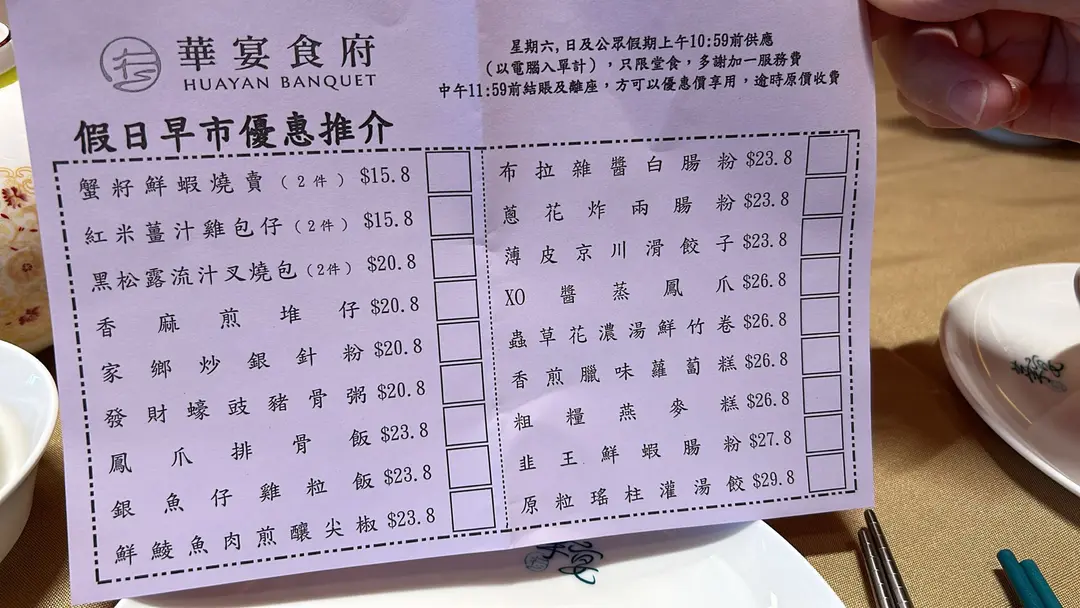 華宴食府
HUAYAN BANQUET
星期六,日及公眾假期上午10:59前供應
(以電腦入單計),只限堂食,多謝加一服務費
中午11:59前結賬及離座,方可以優惠價享用,逾時原價收費
假日早市優惠推介
蟹籽鮮蝦燒賣(2件) $15.8
紅米薑汁雞包仔(2件) $15.8
黑松露流汁叉燒包(2件) $20.8
香麻煎堆仔 $20.8
家鄉炒銀針粉 $20.8
發財蠔豉豬骨粥 $20.8
鳳爪排骨飯 $23.8
銀魚仔雞粒飯 $23.8
鮮鯪魚肉煎釀尖椒 $23.8
布拉雜醬白腸粉 $23.8
蔥花炸兩腸粉 $23.8
薄皮京川滑餃子 $23.8
XO醬蒸鳳爪 $26.8
蟲草花濃湯鮮竹卷 $26.8
香煎臘味蘿蔔糕 $26.8
粗糧燕麥糕 $26.8
韭王鮮蝦腸粉 $27.8
原粒瑤柱灌湯餃 $29.8